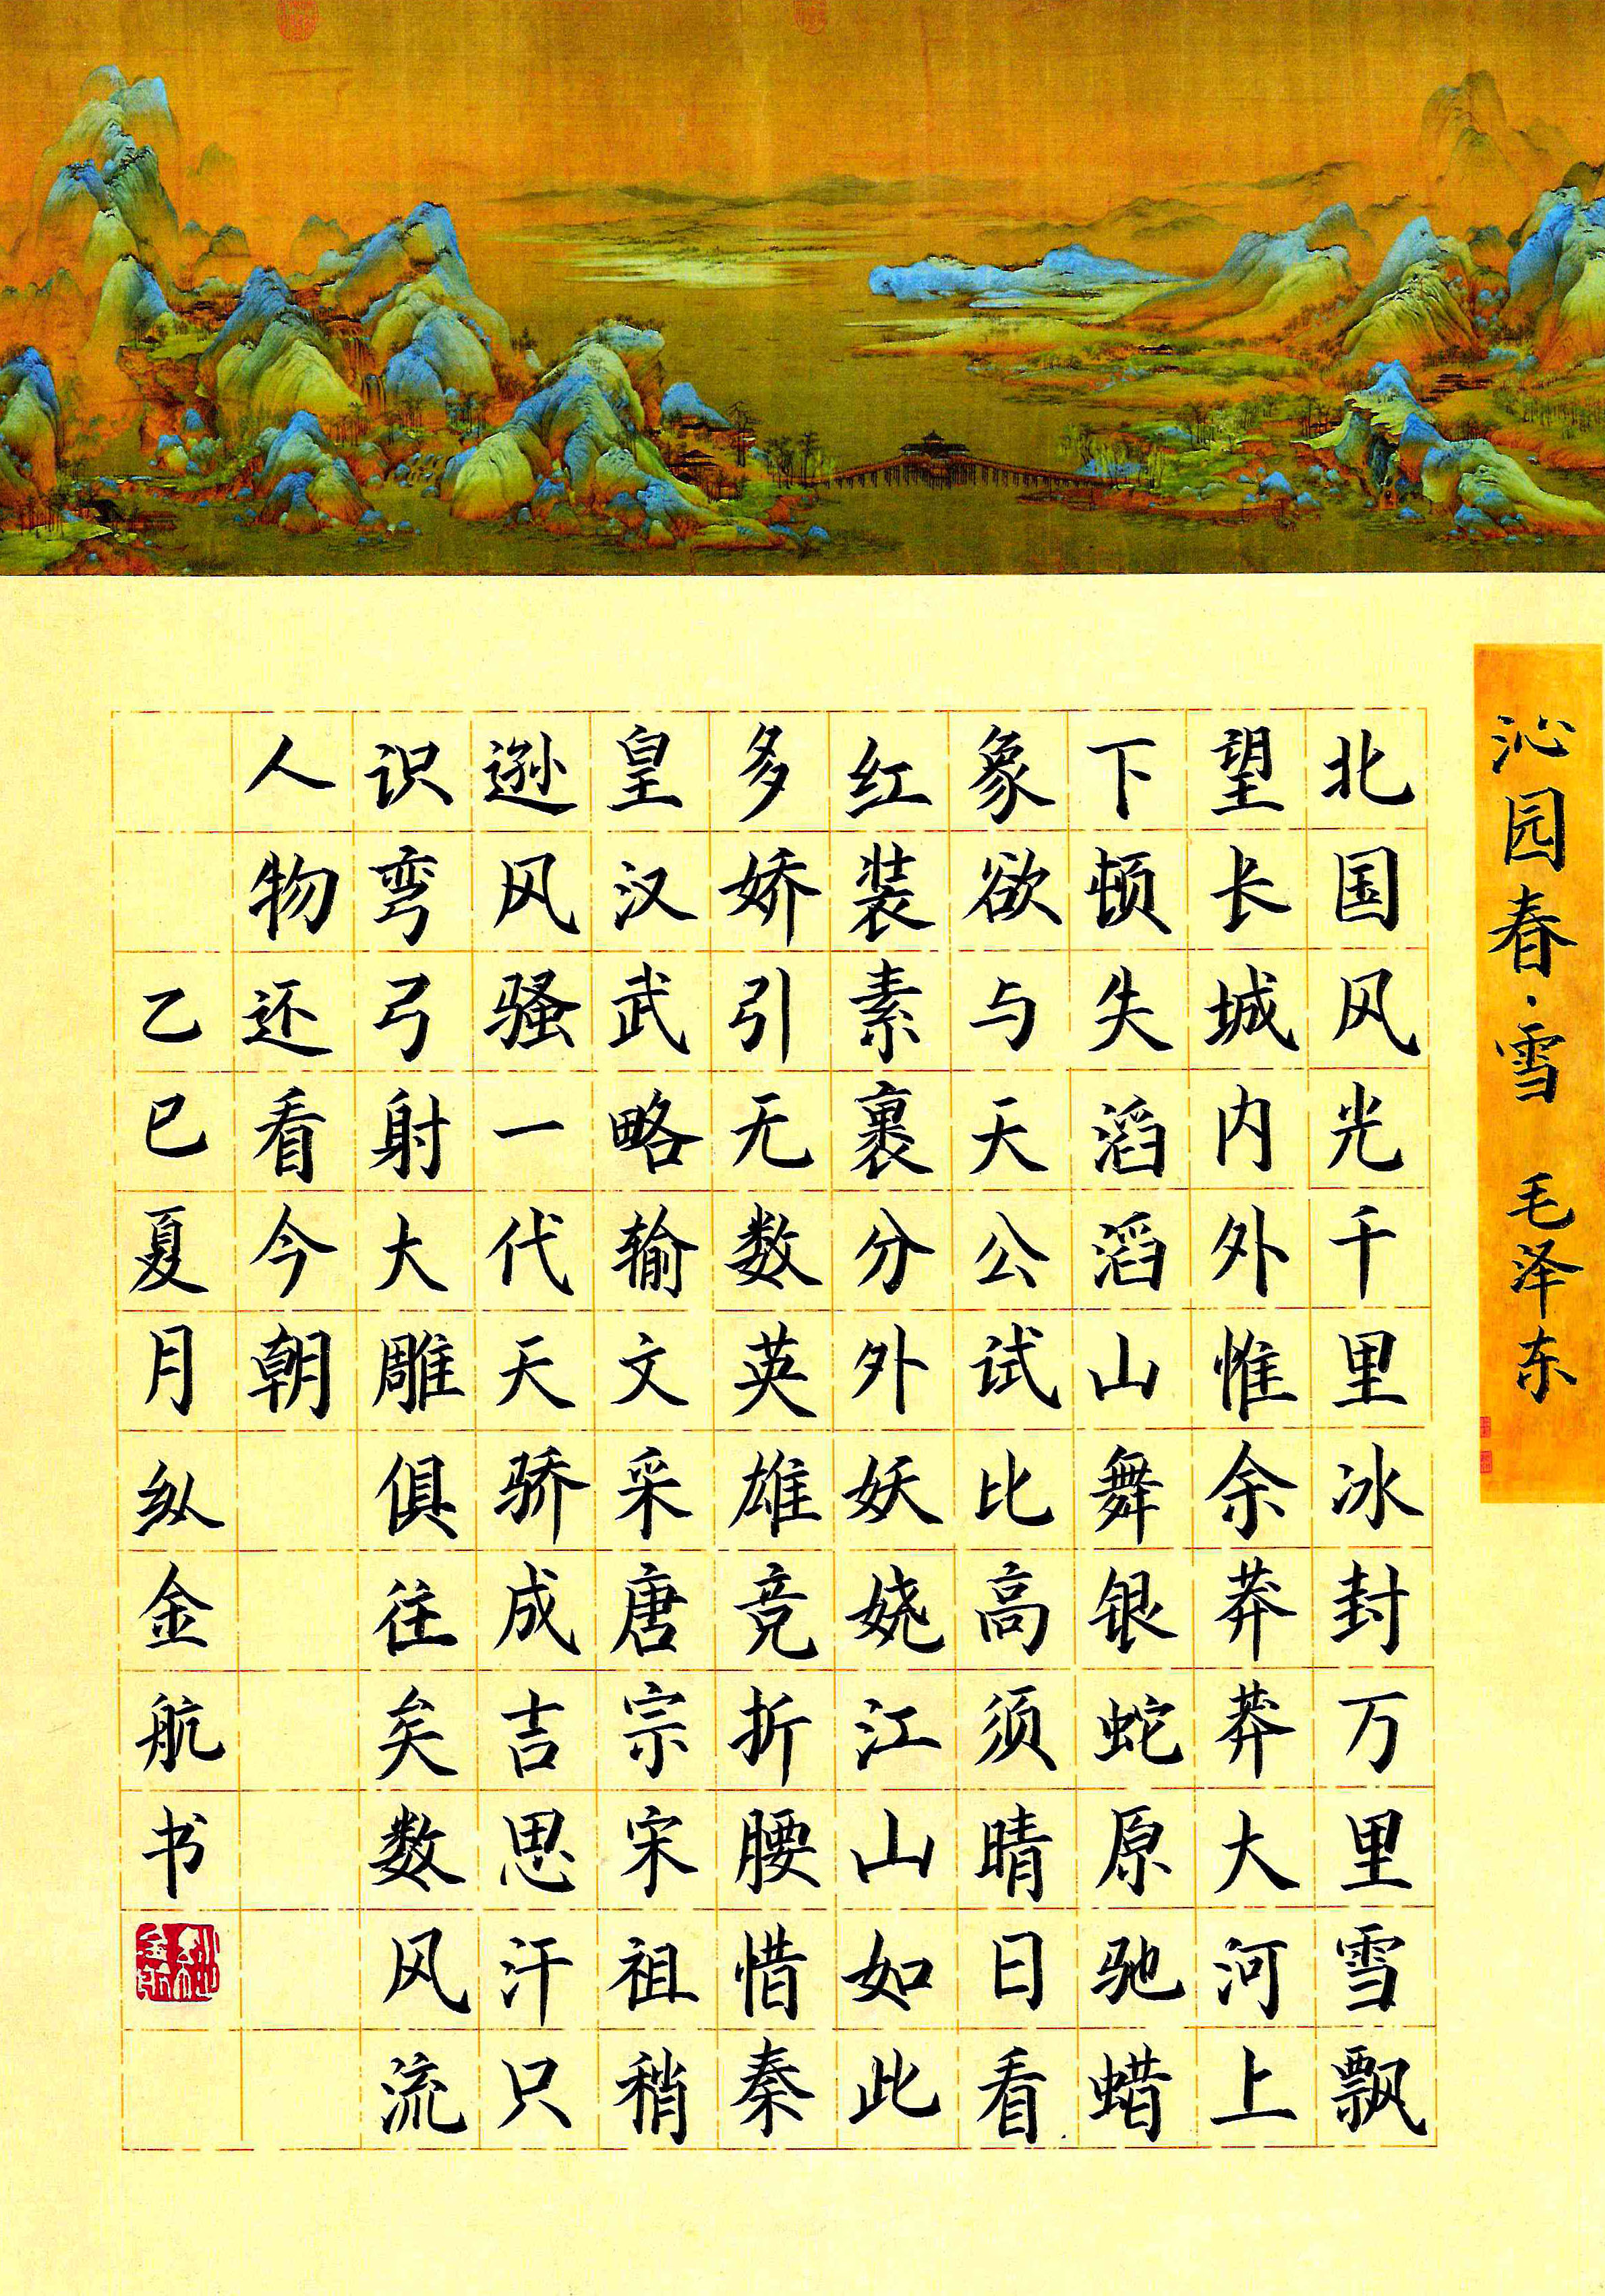 沁园春·雪 毛泽东
北国风光千里冰封万里雪飘
望长城内外惟余莽莽大河上
下顿失滔滔山舞银蛇原驰蜡
象欲与天公试比高须晴日看
红装素裹分外妖娆江山如此
多娇引无数英雄竞折腰惜秦
皇汉武略输文采唐宗宋祖稍
逊风骚一代天骄成吉思汗只
识弯弓射大雕俱往矣数风流
人物还看今朝
乙巳夏月纵金航书